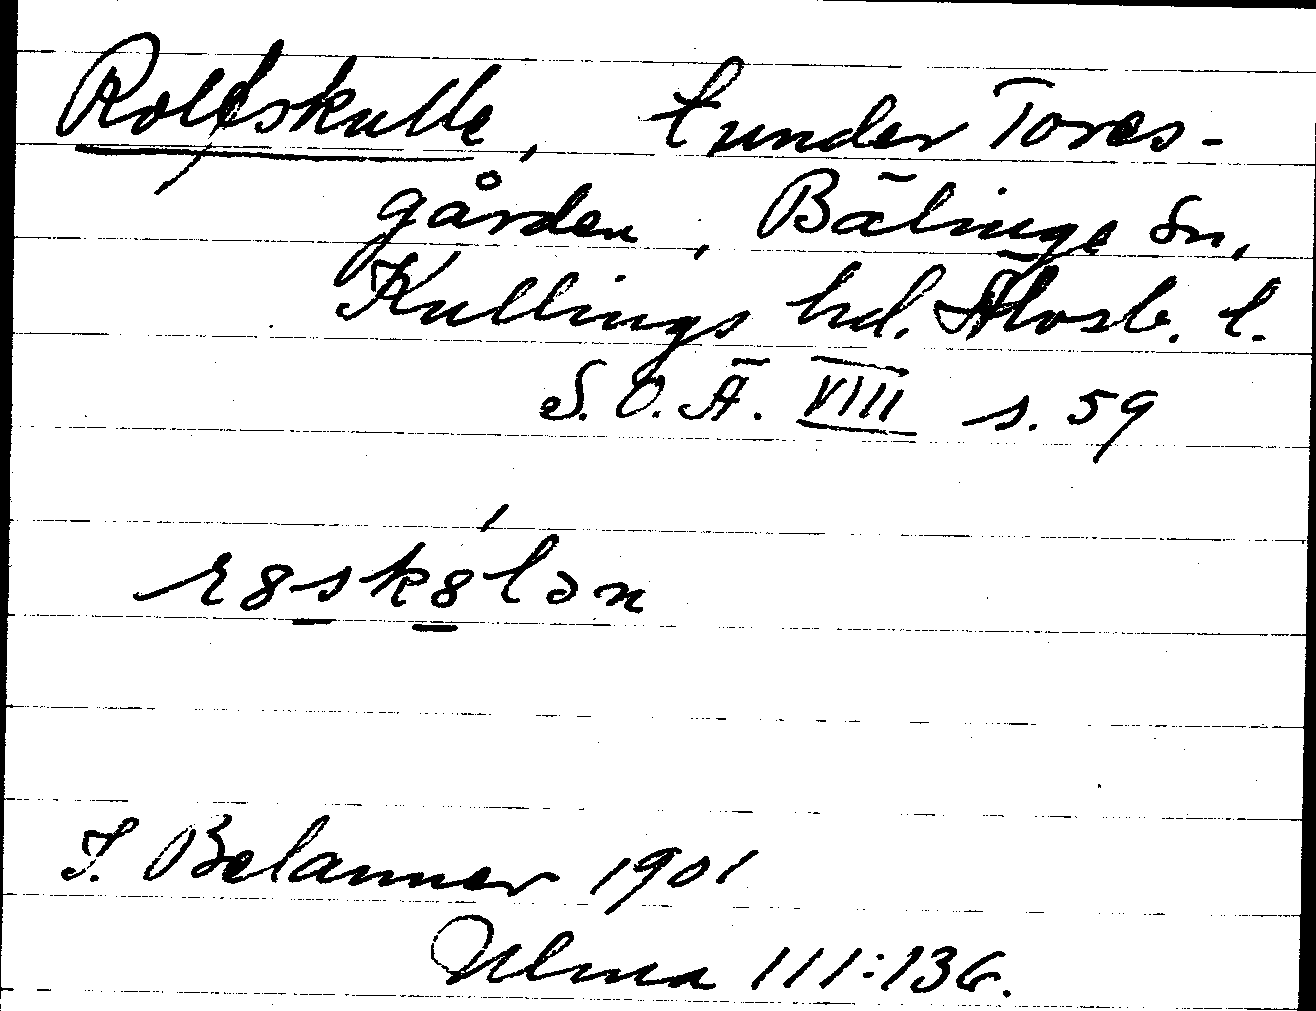 Rolfskulle, t under Tores-
gården, Bälinge sn,
Kullings hd. Älvsb. l.
S.O.Ä. VIII s. 59
r8sk8lən
I. Belanner 1901
Ulma 111:136.